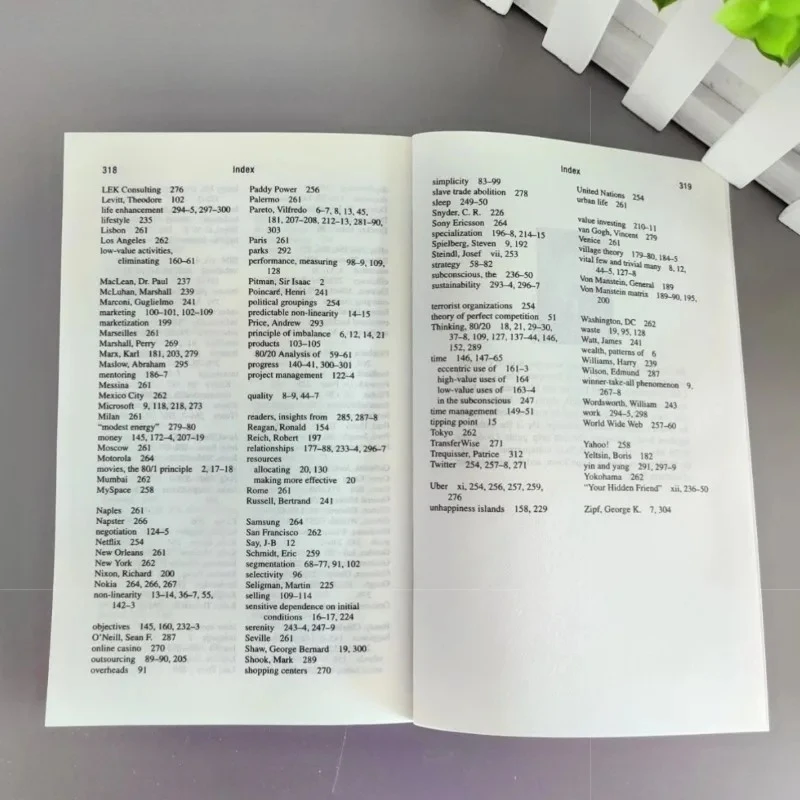 318
Index
LEK Consulting 276
Levitt, Theodore 102
life enhancement 294–5, 297–300
lifestyle 235
Lisbon 261
Los Angeles 262
low-value activities,
eliminating 160–61
MacLean, Dr. Paul 237
McLuhan, Marshall 239
Marconi, Guglielmo 241
marketing 100–101, 102–109
marketization 199
Marseilles 261
Marshall, Perry 269
Marx, Karl 181, 203, 279
Maslow, Abraham 295
mentoring 186–7
Messina 261
Mexico City 262
Microsoft 9, 118, 218, 273
Milan 261
"modest energy" 279–80
money 145, 172–4, 207–19
Moscow 261
Motorola 264
movies, the 80/1 principle 2, 17–18
Mumbai 262
MySpace 258
Naples 261
Napster 266
negotiation 124–5
Netflix 254
New Orleans 261
New York 262
Nixon, Richard 200
Nokia 264, 266, 267
non-linearity 13–14, 36–7, 55,
142–3
objectives 145, 160, 232–3
O'Neill, Sean F. 287
online casino 270
outsourcing 89–90, 205
overheads 91
Paddy Power 256
Palermo 261
Pareto, Vilfredo 6–7, 8, 13, 45,
181, 207–208, 212–13, 281–90,
303
Paris 261
parks 292
performance, measuring 98–9, 109,
128
Pitman, Sir Isaac 2
Poincaré, Henri 241
political groupings 254
predictable non-linearity 14–15
Price, Andrew 293
principle of imbalance 6, 12, 14, 21
products 103–105
80/20 Analysis of 59–61
progress 140–41, 300–301
project management 122–4
quality 8–9, 44–7
readers, insights from 285, 287–8
Reagan, Ronald 154
Reich, Robert 197
relationships 177–88, 233–4, 296–7
resources
allocating 20, 130
making more effective 20
Rome 261
Russell, Bertrand 241
Samsung 264
San Francisco 262
Say, J-B 12
Schmidt, Eric 259
segmentation 68–77, 91, 102
selectivity 96
Seligman, Martin 225
selling 109–114
sensitive dependence on initial
conditions 16–17, 224
serenity 243–4, 247–9
Seville 261
Shaw, George Bernard 19, 300
Shook, Mark 289
shopping centers 270
Index
319
simplicity 83–99
slave trade abolition 278
sleep 249–50
Snyder, C. R. 226
Sony Ericsson 264
specialization 196–8, 214–15
Spielberg, Steven 9, 192
Steindl, Josef vii, 253
strategy 58–82
subconscious, the 236–50
sustainability 293–4, 296–7
terrorist organizations 254
theory of perfect competition 51
Thinking, 80/20 18, 21, 29–30,
37–8, 109, 127, 137–44, 146,
152, 289
time 146, 147–65
eccentric use of 161–3
high-value uses of 164
low-value uses of 163–4
in the subconscious 247
time management 149–51
tipping point 15
Tokyo 262
TransferWise 271
Trequisser, Patrice 312
Twitter 254, 257–8, 271
Uber xi, 254, 256, 257, 259,
276
unhappiness islands 158, 229
United Nations 254
urban life 261
value investing 210–11
van Gogh, Vincent 279
Venice 261
village theory 179–80, 184–5
vital few and trivial many 8, 12,
44–5, 127–8
Von Manstein, General 189
Von Manstein matrix 189–90, 195,
200
Washington, DC 262
waste 19, 95, 128
Watt, James 241
wealth, patterns of 6
Williams, Harry 239
Wilson, Edmund 287
winner-take-all phenomenon 9,
267–8
Wordsworth, William 243
work 294–5, 298
World Wide Web 257–60
Yahoo! 258
Yeltsin, Boris 182
yin and yang 291, 297–9
Yokohama 262
"Your Hidden Friend" xii, 236–50
Zipf, George K. 7, 304